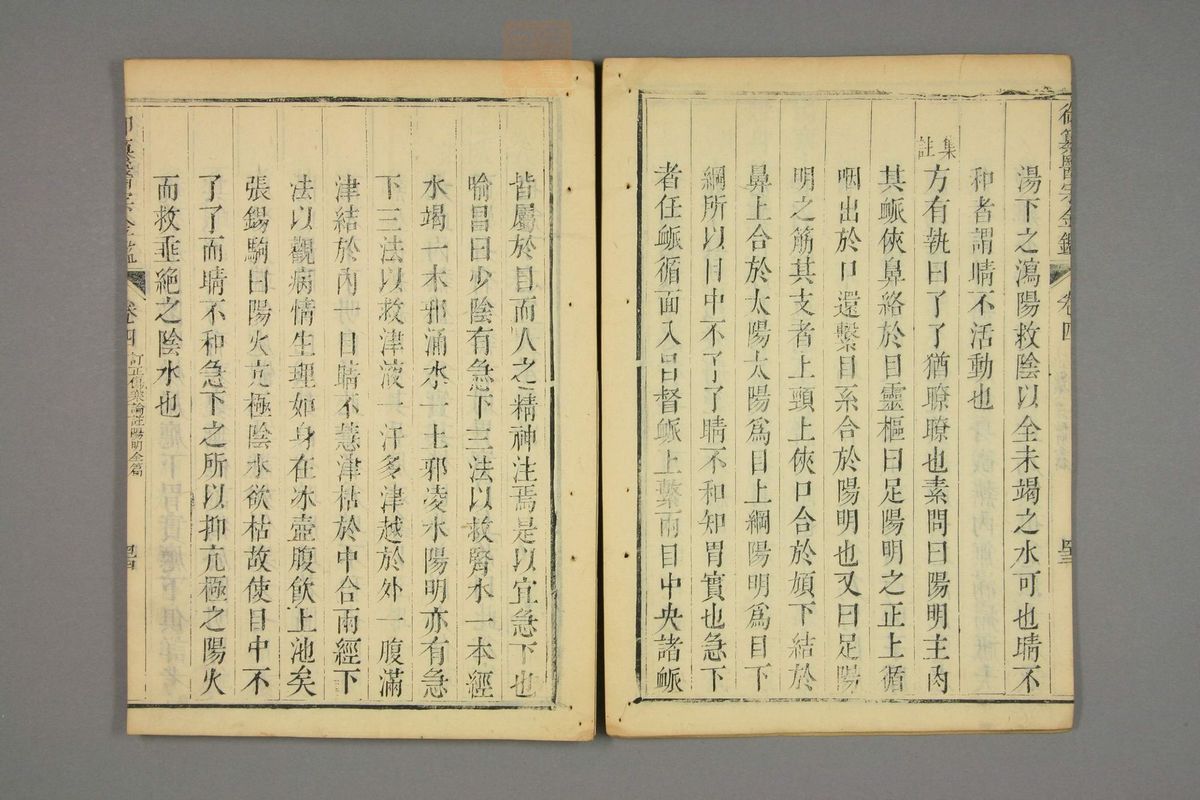 御纂醫宗金鑑
卷四
湯下之瀉陽救陰以全未竭之水可也睛不
和者謂睛不活動也
集註
方有執曰了了猶瞭瞭也素問曰陽明主肉
其脈俠鼻絡於目靈樞曰足陽明之正上循
咽出於口還繫目系合於陽明也又曰足陽
明之筋其支者上頸上俠口合於頄下結於
鼻上合於太陽太陽爲目上綱陽明爲目下
綱所以目中不了了睛不和知胃實也急下
者任脈循面入目督脈上繫兩目中央諸脈
皆屬於目而人之精神注焉是以宜急下也
喻昌曰少陰有急下三法以救腎水一本經
水竭一木邪涌水一土邪凌水陽明亦有急
下三法以救津液一汗多津越於外一腹滿
津結於內一目睛不慧津枯於中合兩經下
法以觀病情生理如身在冰壺腹飲上池矣
張錫駒曰陽火亢極陰水欲枯故使目中不
了了而睛不和急下之所以抑亢極之陽火
而救垂絕之陰水也
御纂醫宗金鑑
卷四
訂正傷寒論註陽明全篇